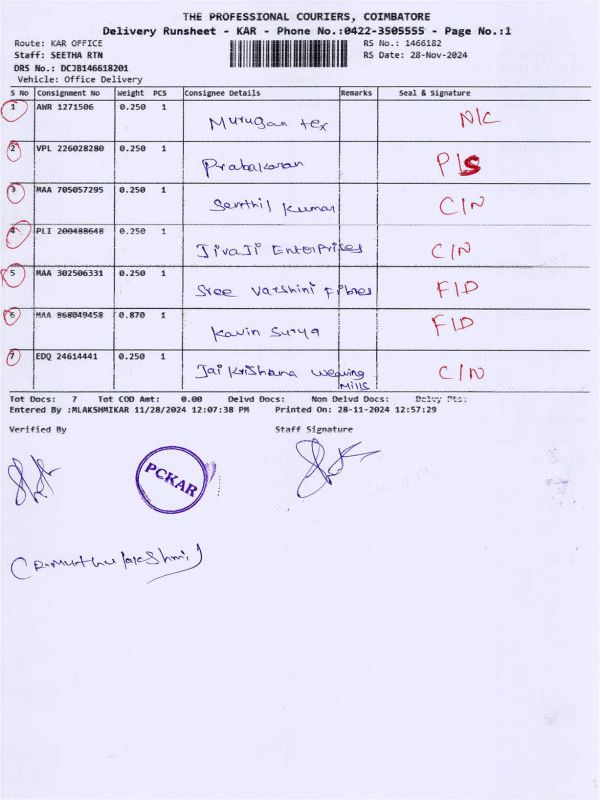 THE PROFESSIONAL COURIERS, COIMBATORE
Delivery Runsheet - KAR - Phone No.:0422-3505555 - Page No.:1
Route: KAR OFFICE RS No.: 1466182
Staff: SEETHA RTN RS Date: 28-Nov-2024
DRS No.: DCJB146618201
Vehicle: Office Delivery
S No Consignment No Weight PCS Consignee Details Remarks Seal & Signature
1 AWR 1271506 0.250 1 Murugan tex N/C
2 VPL 226028280 0.250 1 Prabakaran P/S
3 MAA 705057295 0.250 1 Senthil kumar C/N
4 PLI 200488648 0.250 1 JivaJi Enterprises C/N
5 MAA 302506331 0.250 1 Sree Varshini Fibres F/D
6 MAA 868049458 0.870 1 Kavin Surya F/D
7 EDQ 24614441 0.250 1 Jai Krishana weaving Mills C/N
Tot Docs: 7 Tot COD Amt: 0.00 Delvd Docs: Non Delvd Docs: Delvy Pts:
Entered By :MLAKSHMIKAR 11/28/2024 12:07:38 PM Printed On: 28-11-2024 12:57:29
Verified By Staff Signature
PCKAR